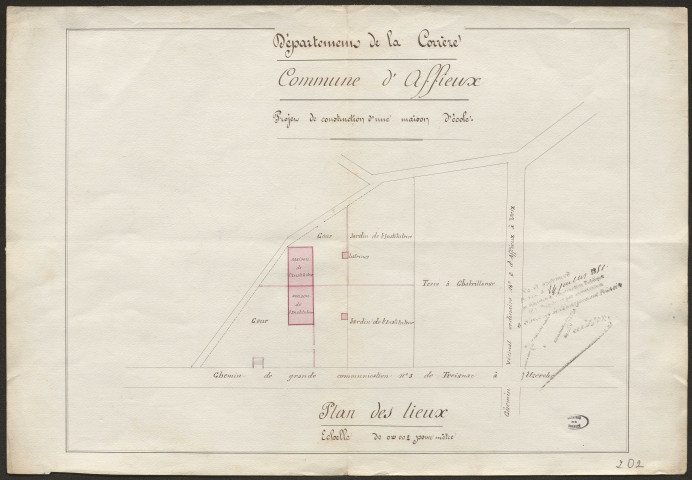 Département de la Corrèze
Commune d'Affieux
Projet de construction d'une maison d'école
Cour
Jardin de l'Instituteur
Latrines
maison
de
l'Institutrice
Terre à
maison
de
l'Instituteur
Cour
Jardin de l'Instituteur
Chemin vicinal ordinaire N° 2 d'Affieux à
Chemin de grande communication N° 3 de Treignac à
Plan des lieux
Echelle de 0m 002 pour mètre
202